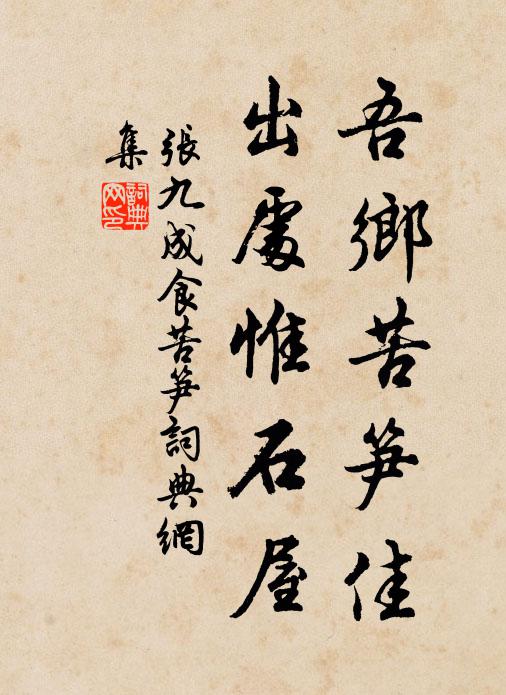 吾鄉苦笋佳
出處惟石屋
張九成食苦笋詞典網
集
詞典
网印